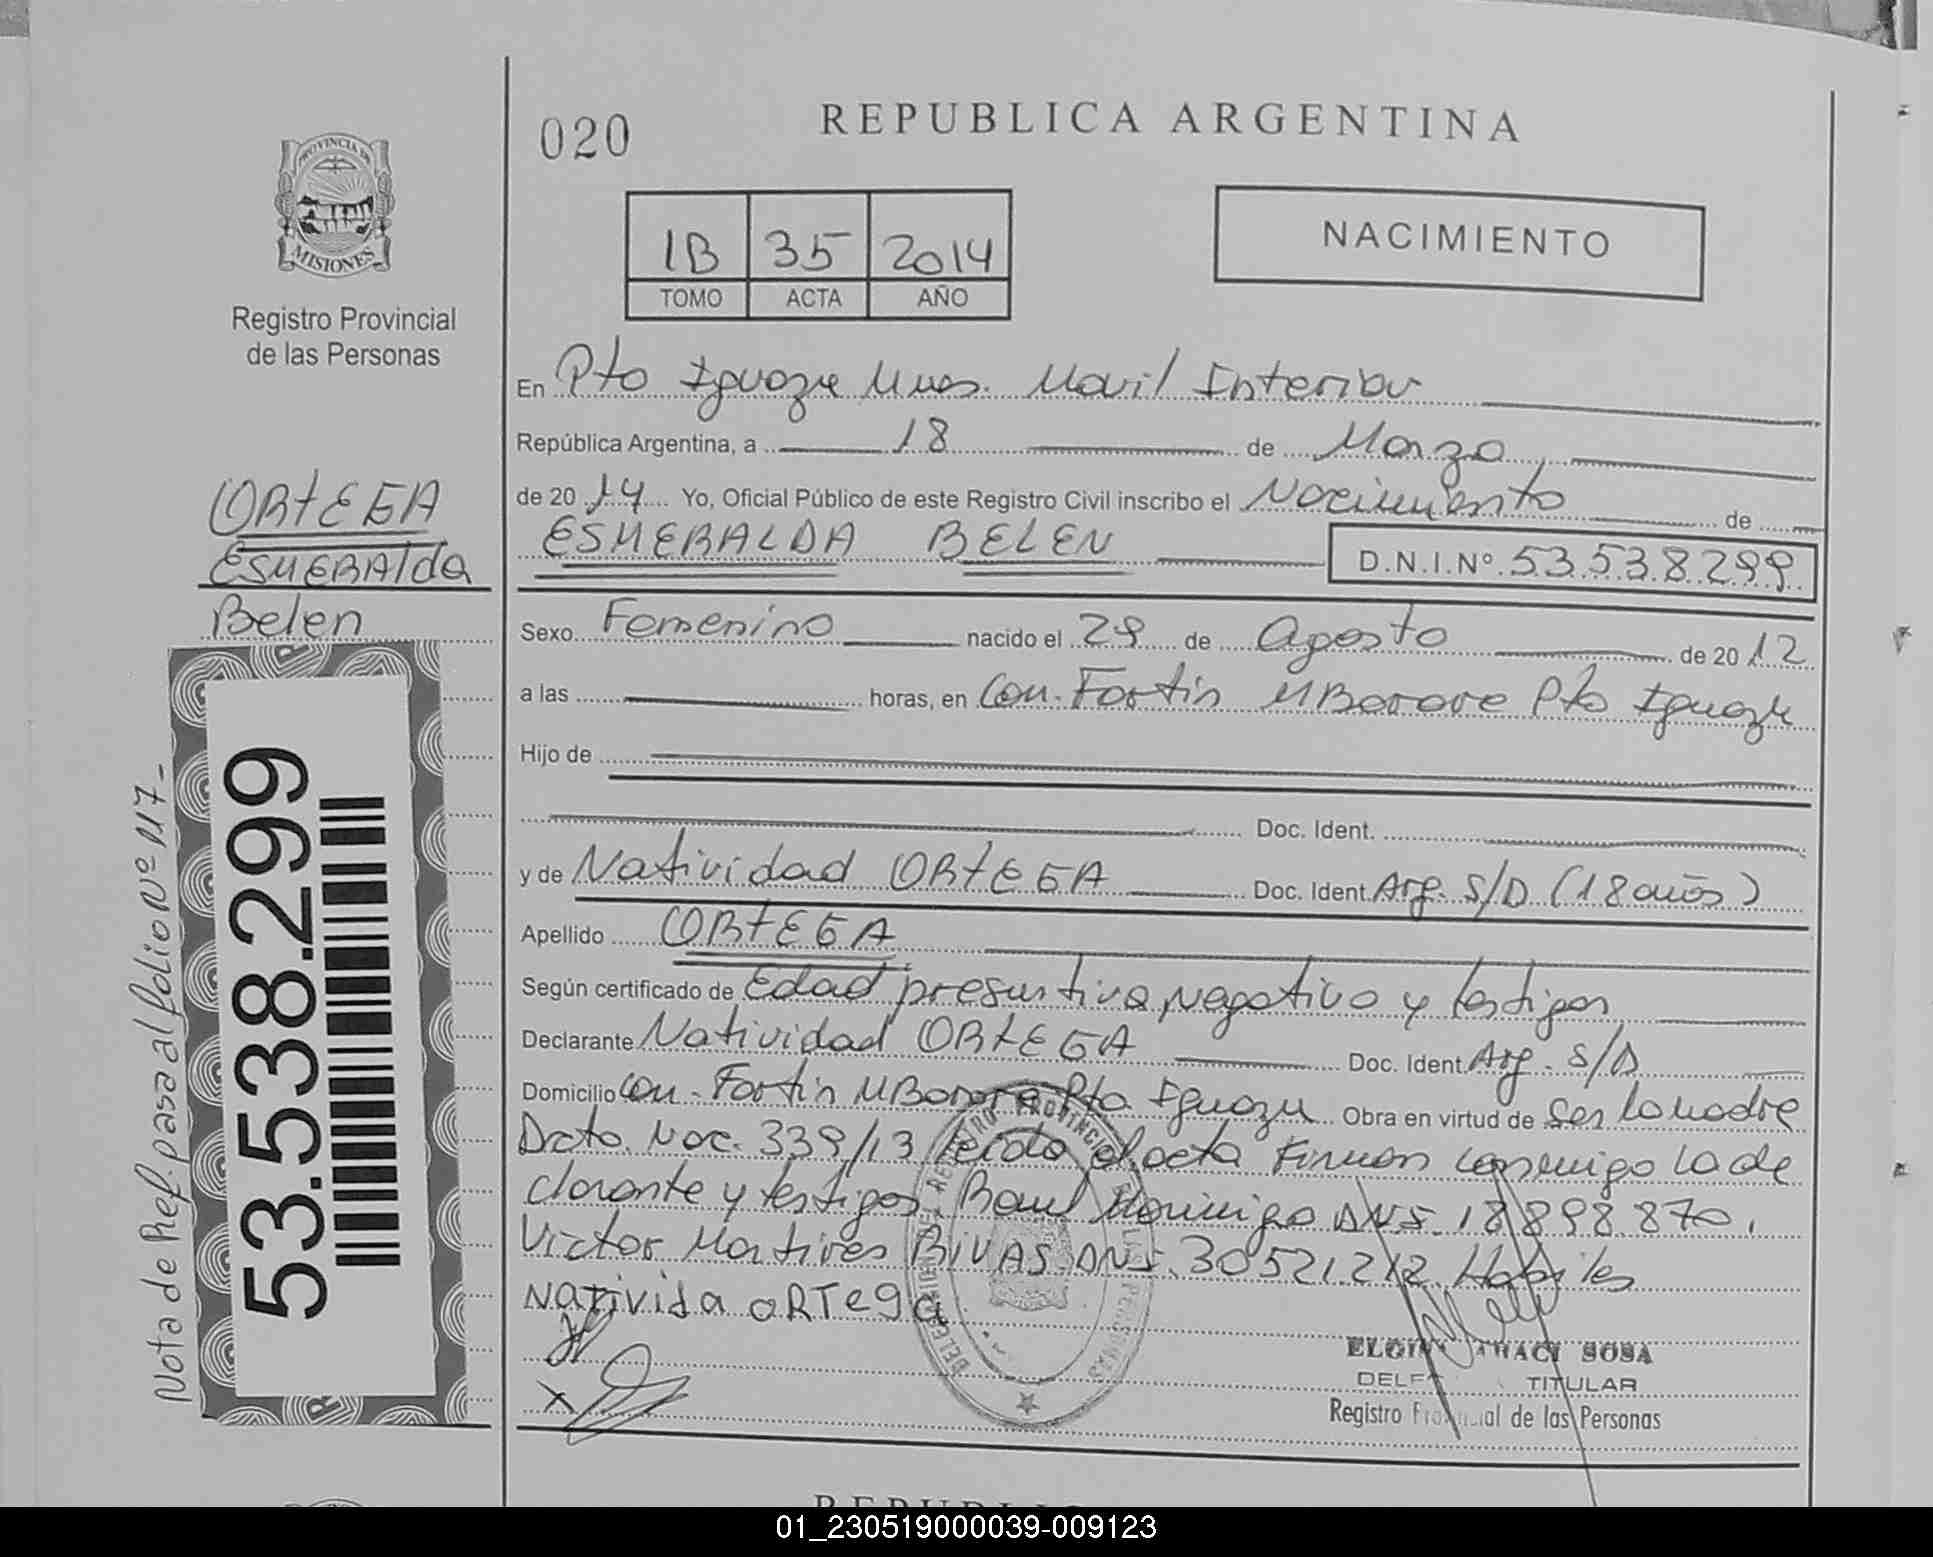 020
REPUBLICA ARGENTINA
PROVINCIA DE
MISIONES
Registro Provincial
de las Personas
1B 35 2014
TOMO ACTA AÑO
NACIMIENTO
En Pto Iguazu Unos. Movil Interior
República Argentina, a 18 de Marzo
de 2014 Yo, Oficial Público de este Registro Civil inscribo el Nacimiento de
ESMERALDA BELEN D.N.I.Nº 53538299
ORTEGA
ESMERAlda
Belen
Sexo Femenino nacido el 29 de Agosto de 2012
a las horas, en Com. Fortin MBorore Pto Iguazu
Hijo de
Doc. Ident.
y de Natividad ORTEGA Doc. Ident. Arg. S/D (18 años)
Apellido ORTEGA
Según certificado de Edad presuntiva, Negativo y testigos
Declarante Natividad ORTEGA Doc. Ident. Arg. S/D
Domicilio Com. Fortin MBorore Pto Iguazu Obra en virtud de Ser la madre
Dcto. Nac. 339/13 leida el acta Firman conmigo la de
clarante y testigos Raul Domingo DNI. 18898870,
Victor Martires RIVAS DNI. 30521212 Habiles
Nativida ORTega
ELGIN ARACI SOSA
TITULAR
Registro Provincial de las Personas
53.538.299
Nota de Ref. pasa al folio Nº 117-
01_230519000039-009123